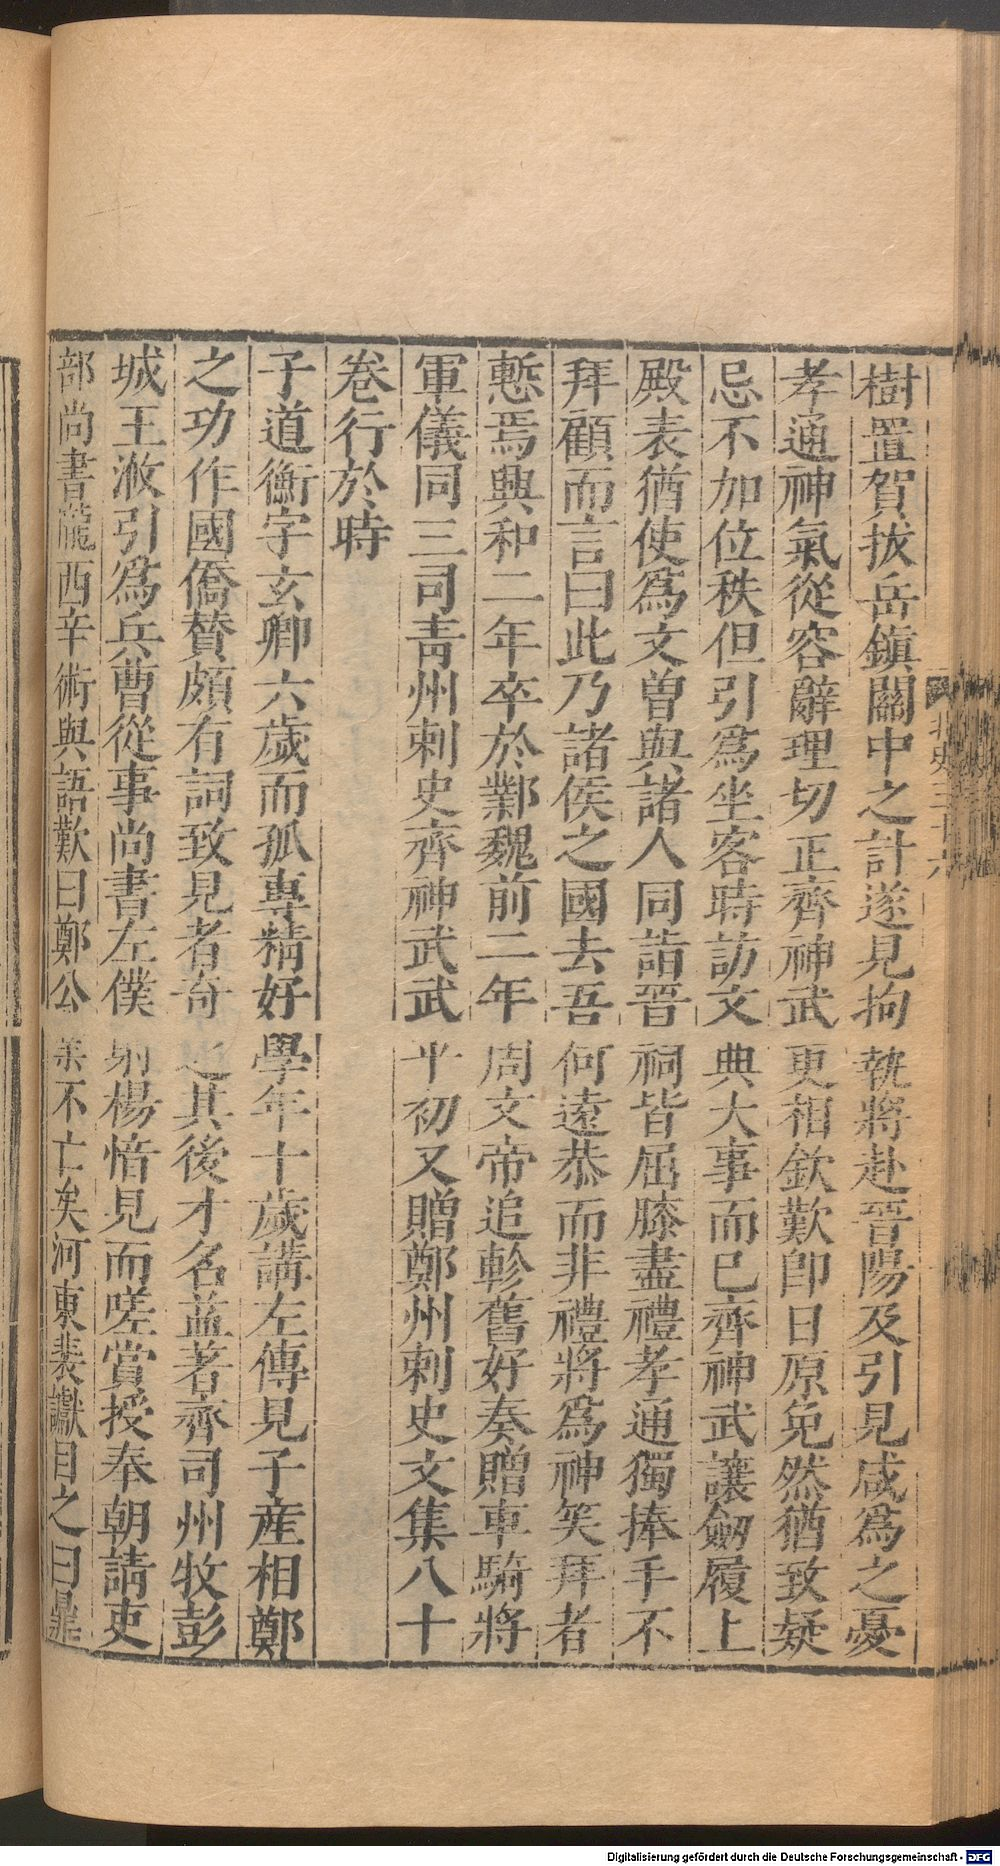 樹置賀拔岳鎮關中之計遂見拘執將赴晉陽及引見咸爲之憂
孝通神氣從容辭理切正齊神武更相欽歎卽日原免然猶致疑
忌不加位秩但引爲坐客時訪文典大事而已齊神武讓劒履上
殿表猶使爲文曽與諸人同詣晉祠皆屈膝盡禮孝通獨捧手不
拜顧而言曰此乃諸侯之國去吾何遠恭而非禮將爲神笑拜者
慙焉興和二年卒於鄴魏前二年周文帝追軫舊好奏贈車騎將
軍儀同三司靑州刺史齊神武武平初又贈鄭州刺史文集八十
卷行於時
子道衡字玄卿六歲而孤專精好學年十歲講左傳見子産相鄭
之功作國僑賛頗有詞致見者奇之其後才名益著齊司州牧彭
城王浟引爲兵曹從事尚書左僕射楊愔見而嗟賞授奉朝請吏
部尚書隴西辛術與語歎曰鄭公業不亡矣河東裴讞目之曰鼎
北史三十六
Digitalisierung gefördert durch die Deutsche Forschungsgemeinschaft - DFG